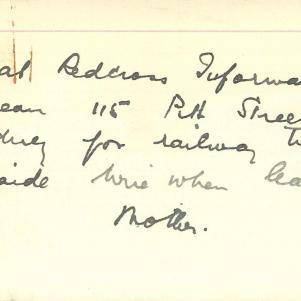 at Redcross Informa
eau 115 Pitt Stree
dney for railway t
aide wire when lea
Mother.